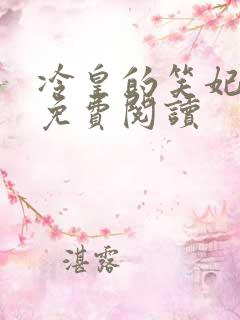 冷皇的笑妃
免費閱讀
湛露